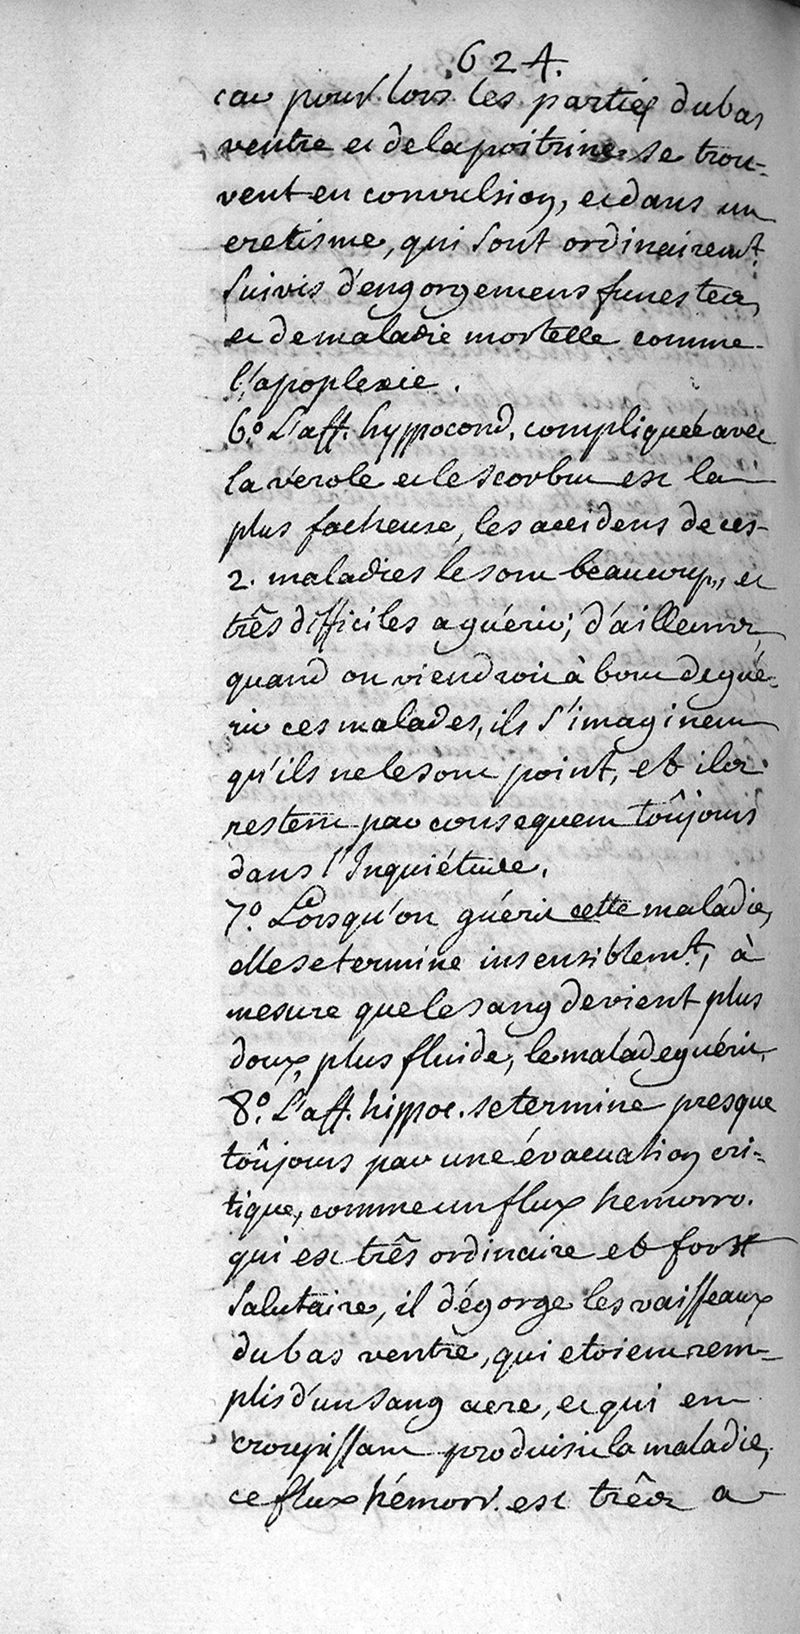 .624.
car pour lors les parties du bas
ventre et de la poitrine se trou-
vent en convulsion, et dans un
eretisme, qui sont ordinairemt
suivis d'engorgemens funestes
et de maladie mortelle comme
l'apoplexie.
6.º L'aff. hyppocond. compliquée avec
la verole et le scorbut est la
plus facheuse, les accidens de ces
2. maladies le sont beaucoup, et
três difficiles a guérir; d'ailleurs,
quand on viendroit à bout de gué-
rir ces malades, ils s'imaginent
qu'ils ne le sont point, et ils
restent par consequent toûjours
dans l'Inquiétude.
7.º Lorsqu'on guérit cette maladie,
elle se termine insensiblemt, à
mesure que le sang devient plus
doux, plus fluide, le malade guérit.
8.º L'aff. hippoc. se termine presque
toûjours par une évacuation cri-
tique, comme un flux hemorro.
qui est três ordinaire et fort
salutaire, il dégorge les vaisseaux
du bas ventre, qui etoient rem-
plis d'un sang acre, et qui en
croupissant produisit la maladie,
ce flux hémorr. est três a